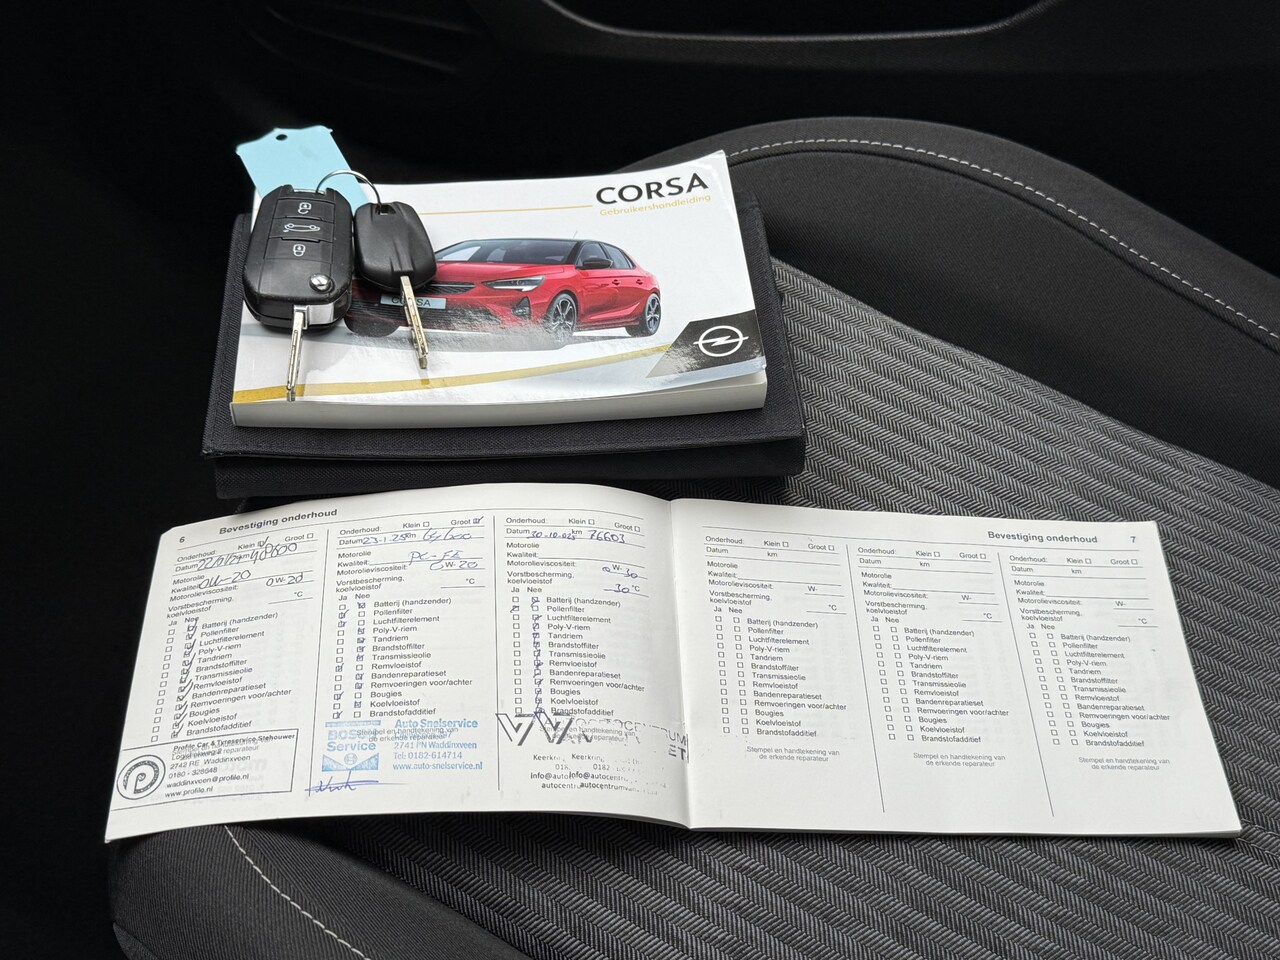 CORSA
Gebruikershandleiding
CORSA
6 Bevestiging onderhoud
Onderhoud: Klein Groot
Datum km
Motorolie
Kwaliteit: 0W-20
Motorolieviscositeit: 0W-20
Vorstbescherming,
koelvloeistof °C
Ja Nee
Batterij (handzender)
Pollenfilter
Luchtfilterelement
Poly-V-riem
Tandriem
Brandstoffilter
Transmissieolie
Remvloeistof
Bandenreparatieset
Remvoeringen voor/achter
Bougies
Koelvloeistof
Brandstofadditief
Profile Car & Tyreservice Stehouwer
2742 RE Waddinxveen
0180 - 328648
waddinxveen@profile.nl
www.profile.nl
Onderhoud: Klein Groot
Datum 23-1-25 km
Motorolie
Kwaliteit:
Motorolieviscositeit: 0W-20
Vorstbescherming,
koelvloeistof °C
Ja Nee
Batterij (handzender)
Pollenfilter
Luchtfilterelement
Poly-V-riem
Tandriem
Brandstoffilter
Transmissieolie
Remvloeistof
Bandenreparatieset
Remvoeringen voor/achter
Bougies
Koelvloeistof
Brandstofadditief
Stempel en handtekening van
de erkende reparateur
Bosch
Service
Auto Snelservice
2741 PN Waddinxveen
Tel: 0182-614714
www.auto-snelservice.nl
Onderhoud: Klein Groot
Datum km 76603
Motorolie
Kwaliteit:
Motorolieviscositeit: 0W-30
Vorstbescherming,
koelvloeistof -30°C
Ja Nee
Batterij (handzender)
Pollenfilter
Luchtfilterelement
Poly-V-riem
Tandriem
Brandstoffilter
Transmissieolie
Remvloeistof
Bandenreparatieset
Remvoeringen voor/achter
Bougies
Koelvloeistof
Brandstofadditief
Bevestiging onderhoud 7
Onderhoud: Klein Groot
Datum km
Motorolie
Kwaliteit:
Motorolieviscositeit: W-
Vorstbescherming,
koelvloeistof °C
Ja Nee
Batterij (handzender)
Pollenfilter
Luchtfilterelement
Poly-V-riem
Tandriem
Brandstoffilter
Transmissieolie
Remvloeistof
Bandenreparatieset
Remvoeringen voor/achter
Bougies
Koelvloeistof
Brandstofadditief
Stempel en handtekening van
de erkende reparateur
Onderhoud: Klein Groot
Datum km
Motorolie
Kwaliteit:
Motorolieviscositeit: W-
Vorstbescherming,
koelvloeistof °C
Ja Nee
Batterij (handzender)
Pollenfilter
Luchtfilterelement
Poly-V-riem
Tandriem
Brandstoffilter
Transmissieolie
Remvloeistof
Bandenreparatieset
Remvoeringen voor/achter
Bougies
Koelvloeistof
Brandstofadditief
Stempel en handtekening van
de erkende reparateur
Onderhoud: Klein Groot
Datum km
Motorolie
Kwaliteit:
Motorolieviscositeit: W-
Vorstbescherming,
koelvloeistof °C
Ja Nee
Batterij (handzender)
Pollenfilter
Luchtfilterelement
Poly-V-riem
Tandriem
Brandstoffilter
Transmissieolie
Remvloeistof
Bandenreparatieset
Remvoeringen voor/achter
Bougies
Koelvloeistof
Brandstofadditief
Stempel en handtekening van
de erkende reparateur